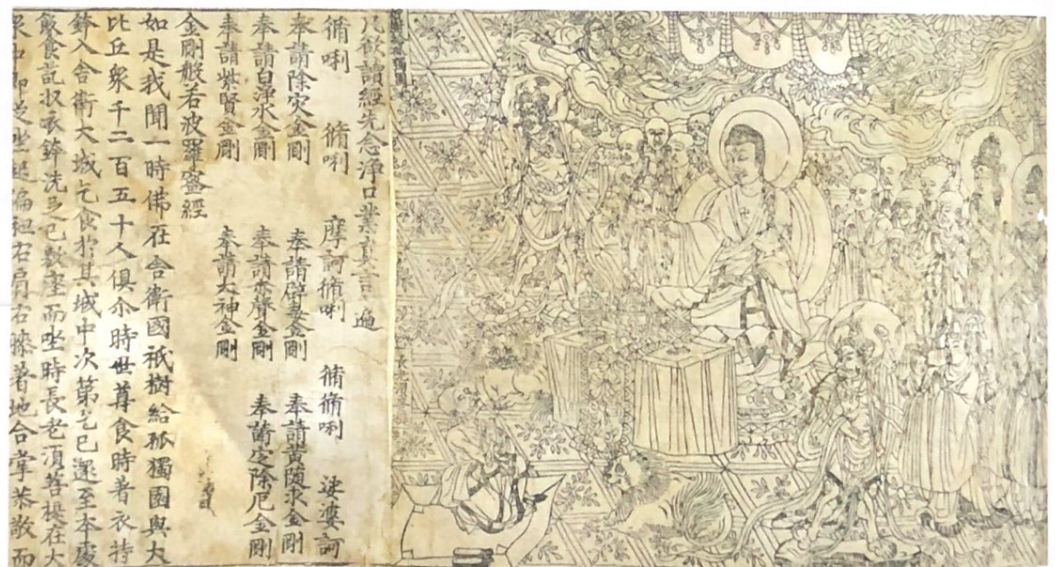 凡欲讀經先念淨口業真言遍
脩唎 脩唎 摩訶脩唎 脩脩唎 娑婆訶
奉請除灾金剛 奉請辟毒金剛 奉請黃隨求金剛
奉請白淨水金剛 奉請赤聲金剛 奉請定除厄金剛
奉請紫賢金剛 奉請大神金剛
金剛般若波羅蜜經
如是我聞一時佛在舍衛國祇樹給孤獨園與大
比丘眾千二百五十人俱尒時世尊食時著衣持
鉢入舍衛大城乞食於其城中次第乞已還至本處
飯食訖收衣鉢洗足已敷座而坐時長老須菩提在大
眾中即從坐起偏袒右肩右膝著地合掌恭敬而